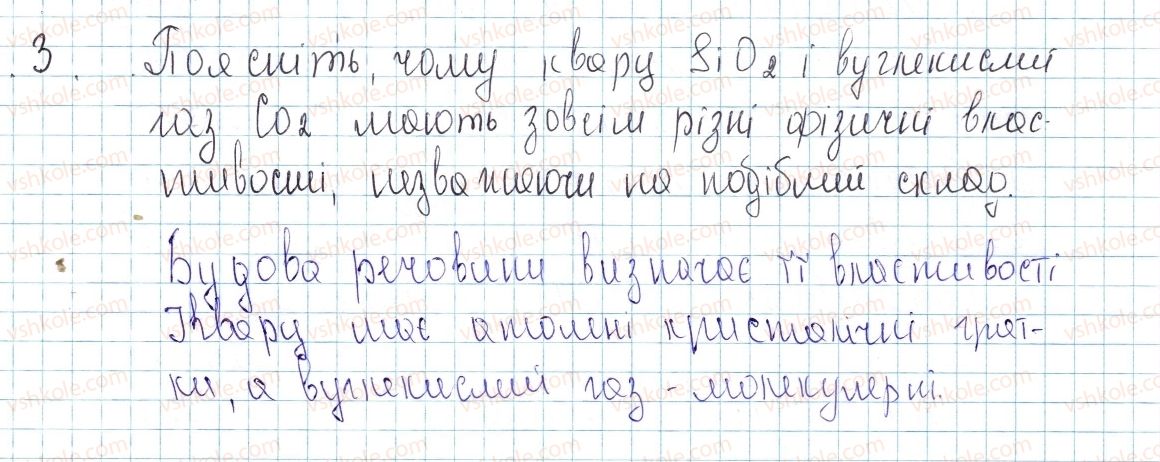 3. Поясніть, чому кварц SiO2 і вуглекислий
газ CO2 мають зовсім різні фізичні влас-
тивості, незважаючи на подібний склад.
Будова речовини визначає її властивості
Кварц має атомні кристалічні грат-
ки, а вуглекислий газ - молекулярні.